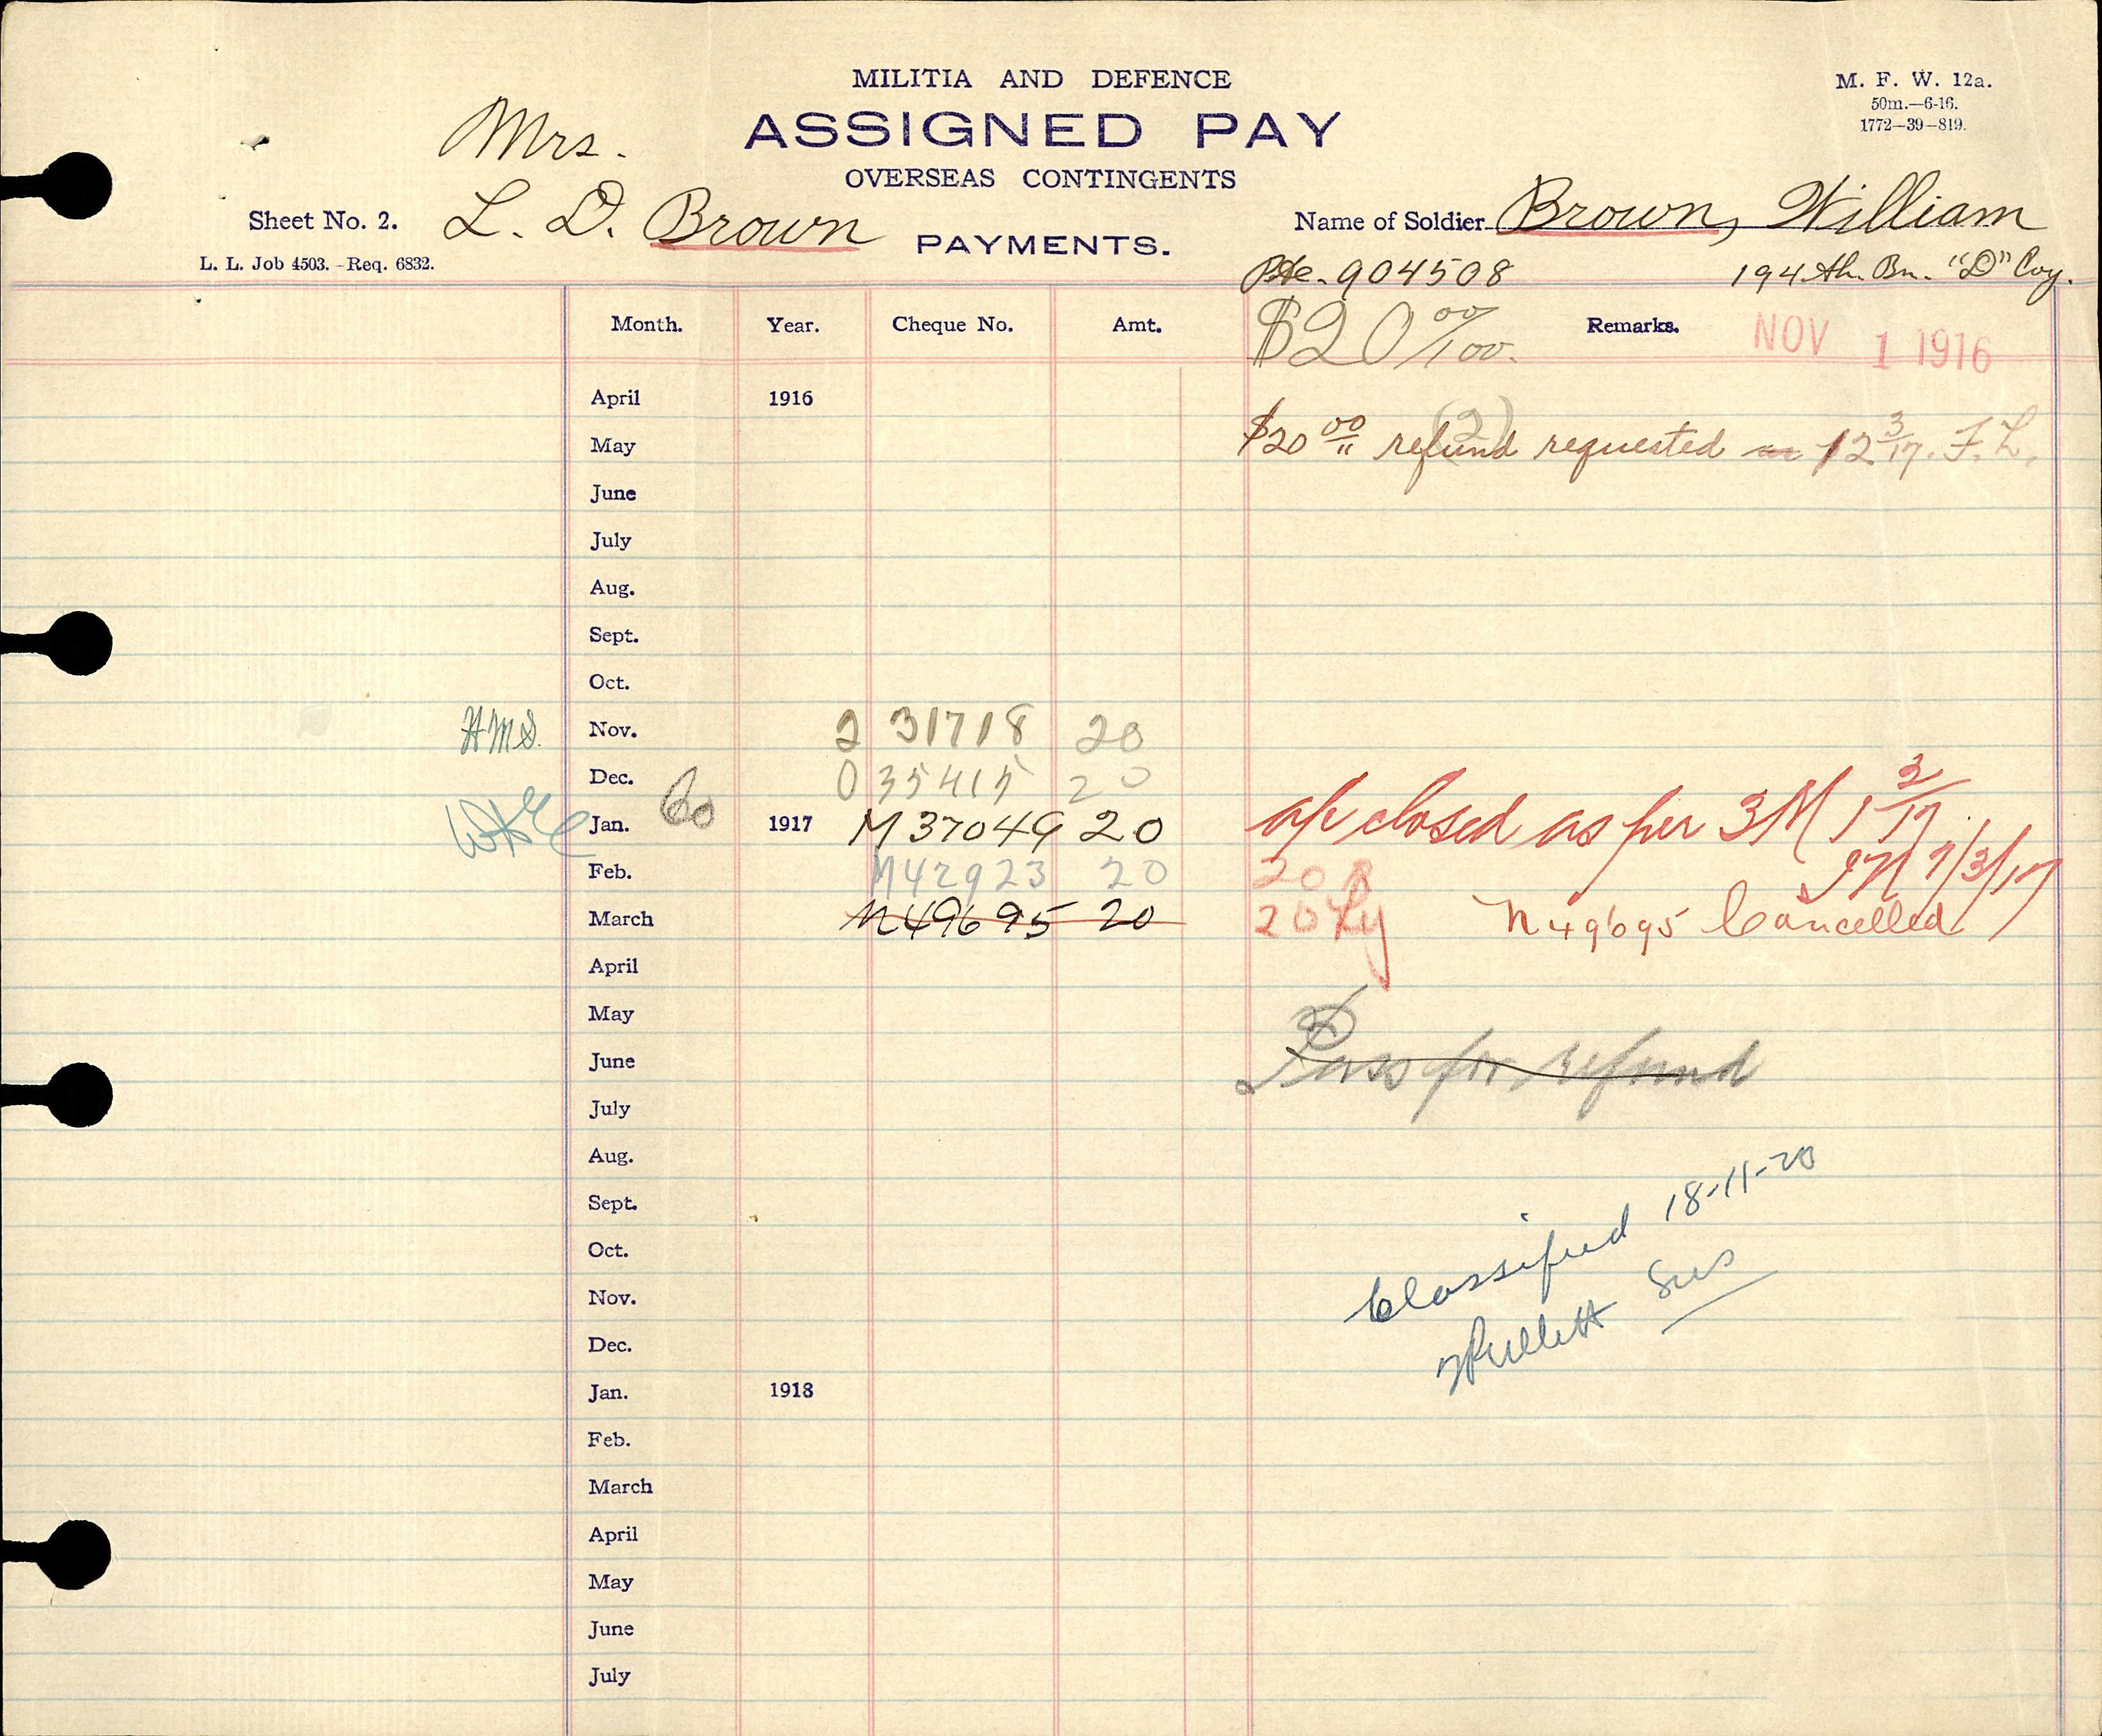 MILITIA AND DEFENCE
M. F. W. 12a.
50m.—6-16.
1772—39—819.
Mrs.
ASSIGNED PAY
OVERSEAS CONTINGENTS
Sheet No. 2. L. D. Brown PAYMENTS. Name of Soldier Brown, William
L. L. Job 4503.-Req. 6832.
Pte. 904508 194th. Bn. "D" Coy.
Month. Year. Cheque No. Amt. $20 00/100. Remarks. NOV 1 1916
April 1916
May $20 00 refund (2) requested 12 3/17. F. L.
June
July
Aug.
Sept.
Oct.
H.M.S. Nov. 31718 20
Dec. 035415 20
Jan. 1917 M 37049 20 a/p closed as per 3M 1 3/17
Feb. M42923 20 20 7/3/17
March N49695 20 20 N49695 Cancelled
April
May
June Pass for refund
July
Aug.
Sept. Classified 18-11-20
Oct.
Nov.
Dec.
Jan. 1918
Feb.
March
April
May
June
July